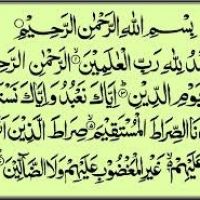 بِسْمِ اللهِ الرَّحْمٰنِ الرَّحِيْمِ
دُ لِلّٰهِ رَبِّ الْعٰلَمِيْنَ الرَّحْمٰنِ الرَّحِ
وْمِ الدِّيْنِ اِيَّاكَ نَعْبُدُ وَاِيَّاكَ نَسْتَ
نَا الصِّرَاطَ الْمُسْتَقِيْمَ صِرَاطَ الَّذِيْنَ اَ
لَيْهِمْ غَيْرِ الْمَغْضُوْبِ عَلَيْهِمْ وَلَا الضَّآلِّيْنَ